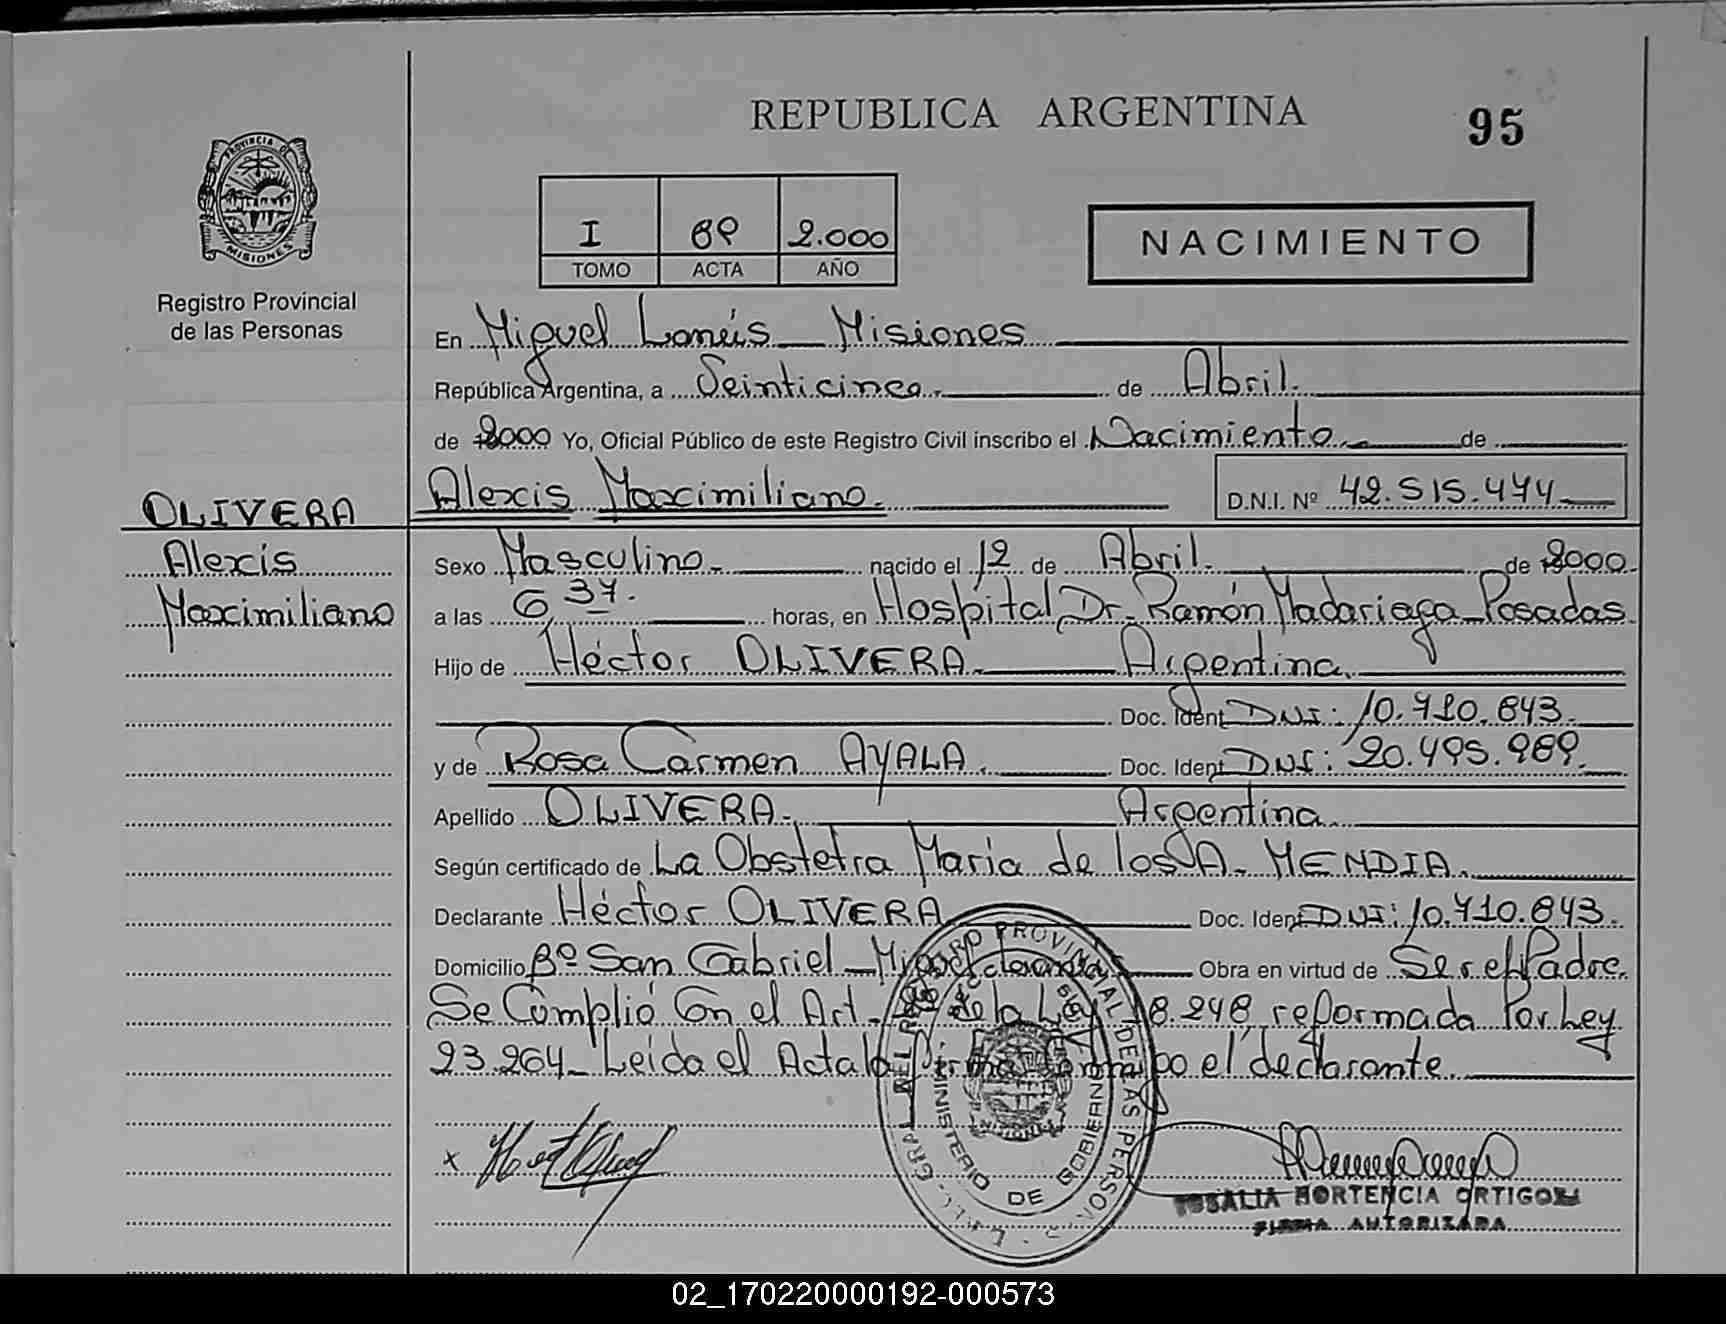 REPUBLICA ARGENTINA
95
PROVINCIA DE MISIONES
Registro Provincial
de las Personas
I 89 2.000
TOMO ACTA AÑO
NACIMIENTO
En Miguel Lanús Misiones
República Argentina, a Veinticinco. de Abril.
de 2000 Yo, Oficial Público de este Registro Civil inscribo el Nacimiento de
Alexis Maximiliano. D.N.I. Nº 42.515.474
OLIVERA
Alexis
Maximiliano
Sexo Masculino. nacido el 12 de Abril. de 2000
a las 6,37. horas, en Hospital Dr. Ramón Madariaga Posadas.
Hijo de Héctor OLIVERA. Argentina.
Doc. Ident. DNI: 10.710.843.
y de Rosa Carmen AYALA. Doc. Ident. DNI: 20.495.989.
Apellido OLIVERA. Argentina.
Según certificado de La Obstetra Maria de los A. MENDIA.
Declarante Héctor OLIVERA Doc. Ident. DNI: 10.710.843.
Domicilio Bº San Gabriel Miguel Lanús Obra en virtud de Ser el Padre.
Se Cumplió Con el Art. de la Ley 18.248, reformada Por Ley
23.264 Leida el Acta la firma Conmigo el declarante.
x
MINISTERIO DE GOBIERNO
ROSALIA HORTENCIA ORTIGOZA
FIRMA AUTORIZADA
02_170220000192-000573